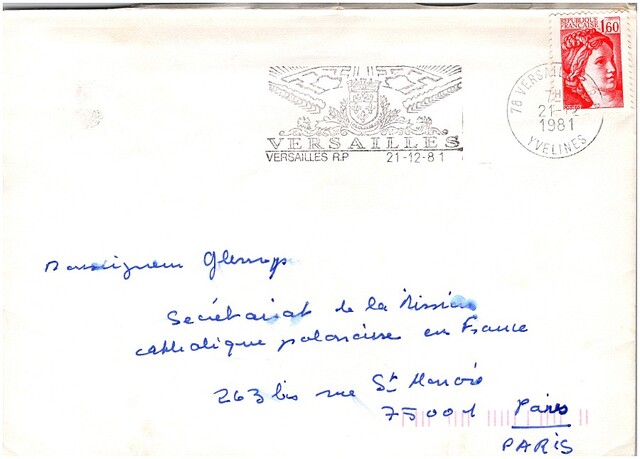 REPUBLIQUE
FRANÇAISE 1,60
78 VERSAILLES
21-12
1981
YVELINES
VERSAILLES
VERSAILLES R.P 21-12-81
Monseigneur
Secrétariat de la Mission
catholique polonaise en France
263 bis rue St Honoré
75001 Paris
PARIS